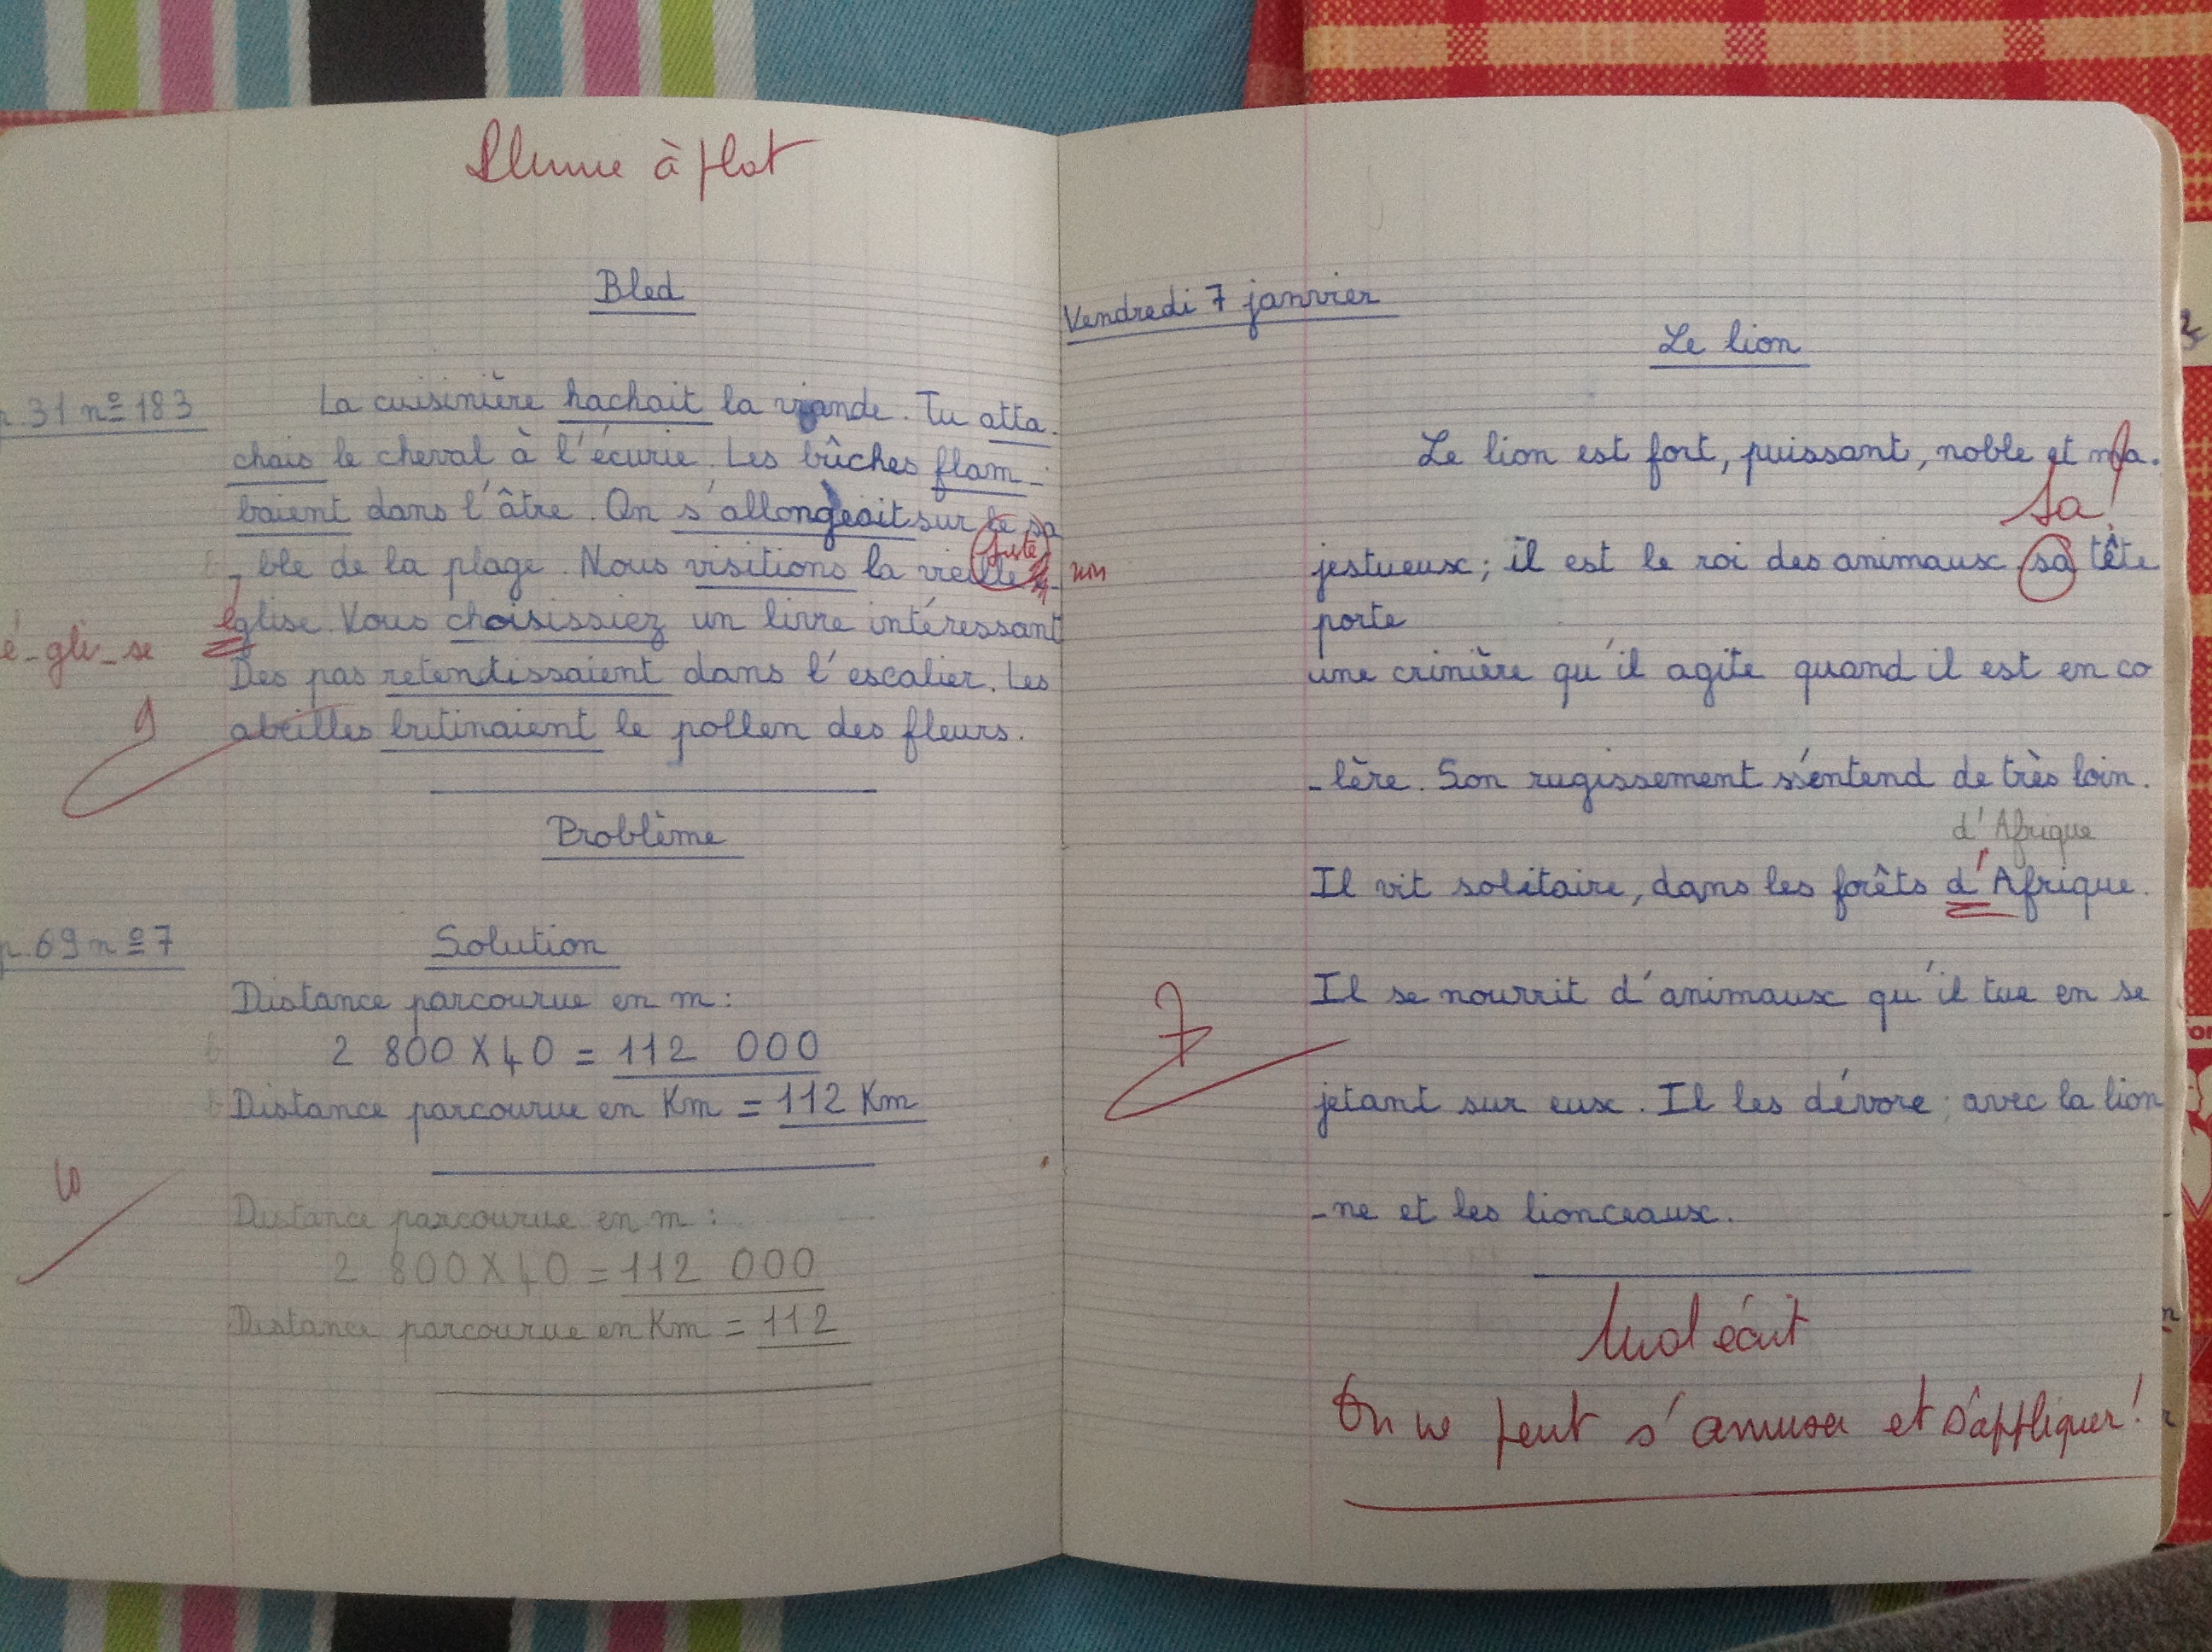 Plume à plat
Bled
p.31 nº 183
La cuisinière hachait la viande. Tu atta.
chais le cheval à l'écurie. Les bûches flam-
baient dans l'âtre. On s'allongeait sur le sa
juste
- ble de la plage. Nous visitions la vieille
é-gli-se
église. Vous choisissiez un livre intéressant
Des pas retentissaient dans l'escalier. Les
abeilles butinaient le pollen des fleurs.
Problème
p.69 nº 7
Solution
Distance parcourue en m :
2 800 X 40 = 112 000
Distance parcourue en Km = 112 Km
Distance parcourue en m :
2 800 X 40 = 112 000
Distance parcourue en Km = 112
Vendredi 7 janvier
Le lion
Le lion est fort, puissant, noble et ma.
sa
jestueux ; il est le roi des animaux, sa tête
porte
une crinière qu'il agite quand il est en co
-lère. Son rugissement s'entend de très loin.
d'Afrique
Il vit solitaire, dans les forêts d'Afrique.
Il se nourrit d'animaux qu'il tue en se
jetant sur eux. Il les dévore ; avec la lion
-ne et les lionceaux.
Mal écrit
On ne peut s'amuser et s'appliquer !